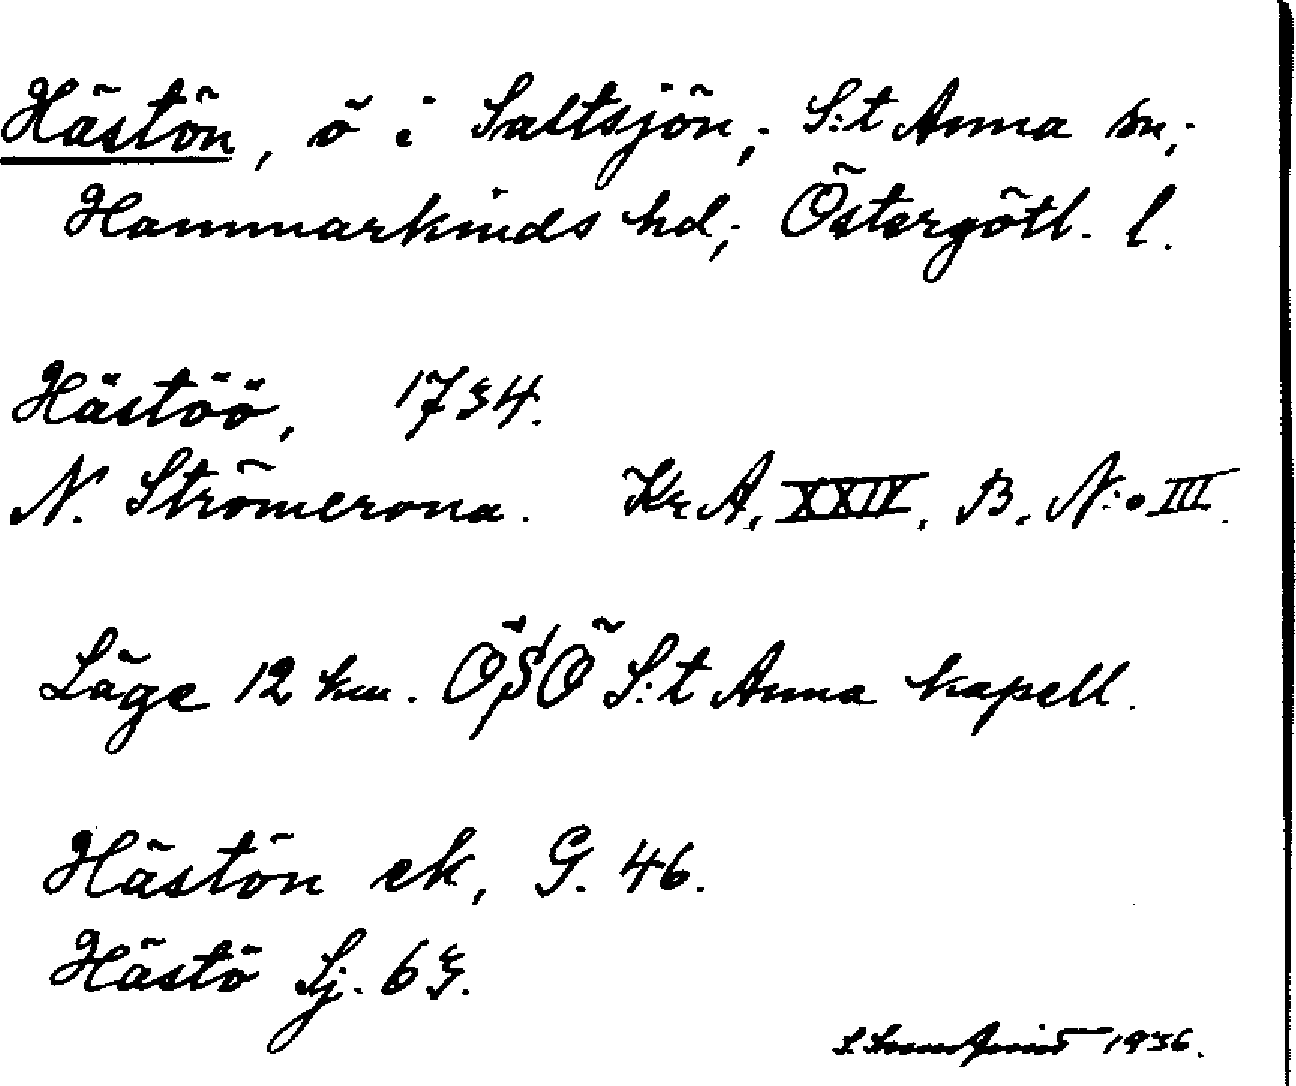 Hästön, ö i Saltsjön; S:t Anna sn;
Hammarkinds hd; Östergötl. l.
Hästöö, 1734.
N. Strömcrona. Kr A, XXIV, B, N:o III.
Läge 12 km. ÖSÖ S:t Anna kapell.
Hästön ek, G. 46.
Hästö Sj. 63.
1936.